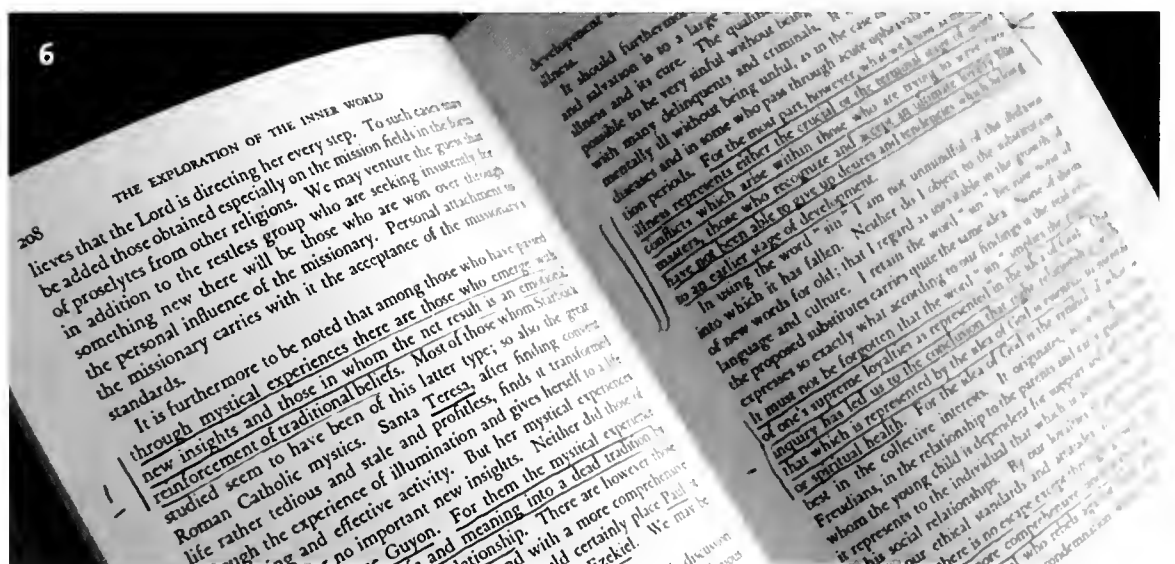 6
208
THE EXPLORATION OF THE INNER WORLD
lieves that the Lord is directing her every step. To such cases may
be added those obtained especially on the mission fields in the form
of proselytes from other religions. We may venture the guess that
in addition to the restless group who are seeking insistently for
something new there will be those who are won over through
the personal influence of the missionary. Personal attachment to
the missionary carries with it the acceptance of the missionary's
standards.
It is furthermore to be noted that among those who have passed
through mystical experiences there are those who emerge with
new insights and those in whom the net result is an emotional
reinforcement of traditional beliefs. Most of those whom Starbuck
studied seem to have been of this latter type; so also the great
Roman Catholic mystics. Santa Teresa, after finding convent
life rather tedious and stale and profitless, finds it transformed
through the experience of illumination and gives herself to a life
and effective activity. But her mystical experiences
no important new insights. Neither did those of
Guyon. For them the mystical experience
and meaning into a dead tradition
lationship. There are however those
and with a more comprehensive
would certainly place Paul
Ezekiel. We may be
discussion
development
illness.
It should furthermore
and salvation is to a large
illness and its cure. The
possible to be very sinful without being
with many delinquents and criminals. It
mentally ill without being sinful, as in the case
diseases and in some who pass through acute
tion periods. For the most part, however, what we
illness represents either the crucial or the terminal stage of
conflicts which arise within those who are trying to
masters, those who recognize and accept an ultimate loyalty
have not been able to give up desires and tendencies which belong
to an earlier stage of development.
In using the word "sin" I am not unmindful of the
into which it has fallen. Neither do I object to the substitution
of new words for old; that I regard as inevitable in the growth of
language and culture. I retain the word "sin" because none of
the proposed substitutes carries quite the same idea. None of them
expresses so exactly what according to our findings is the
It must not be forgotten that the word "sin" implies the
of one's supreme loyalties as represented in the idea of
inquiry has led us to the conclusion that
that which is represented by the idea of God
or spiritual health. For the idea of God
best in the collective interests. It originates,
Freudians, in the relationship to the parents and
whom the young child is dependent for support
it represents to the individual that which is
his social relationships. By our
our ethical standards, and
there is no escape except
more comprehensive
who rebels
condemnation